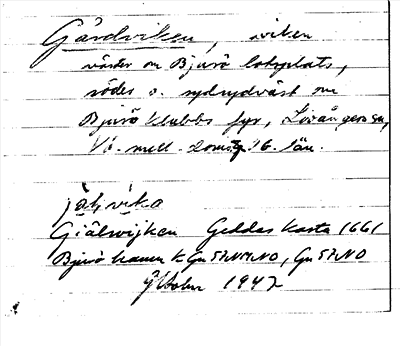 Gärdviken, viken
väster om Bjurö lotsplats,
söder o. sydsydväst om
Bjurö klubbs fyr, Lövångers sn,
Vb. mell. domsg. 16. Län.
Giälwijken Geddas karta 1661
Bjurö hamn
Gn 57 NO
1947